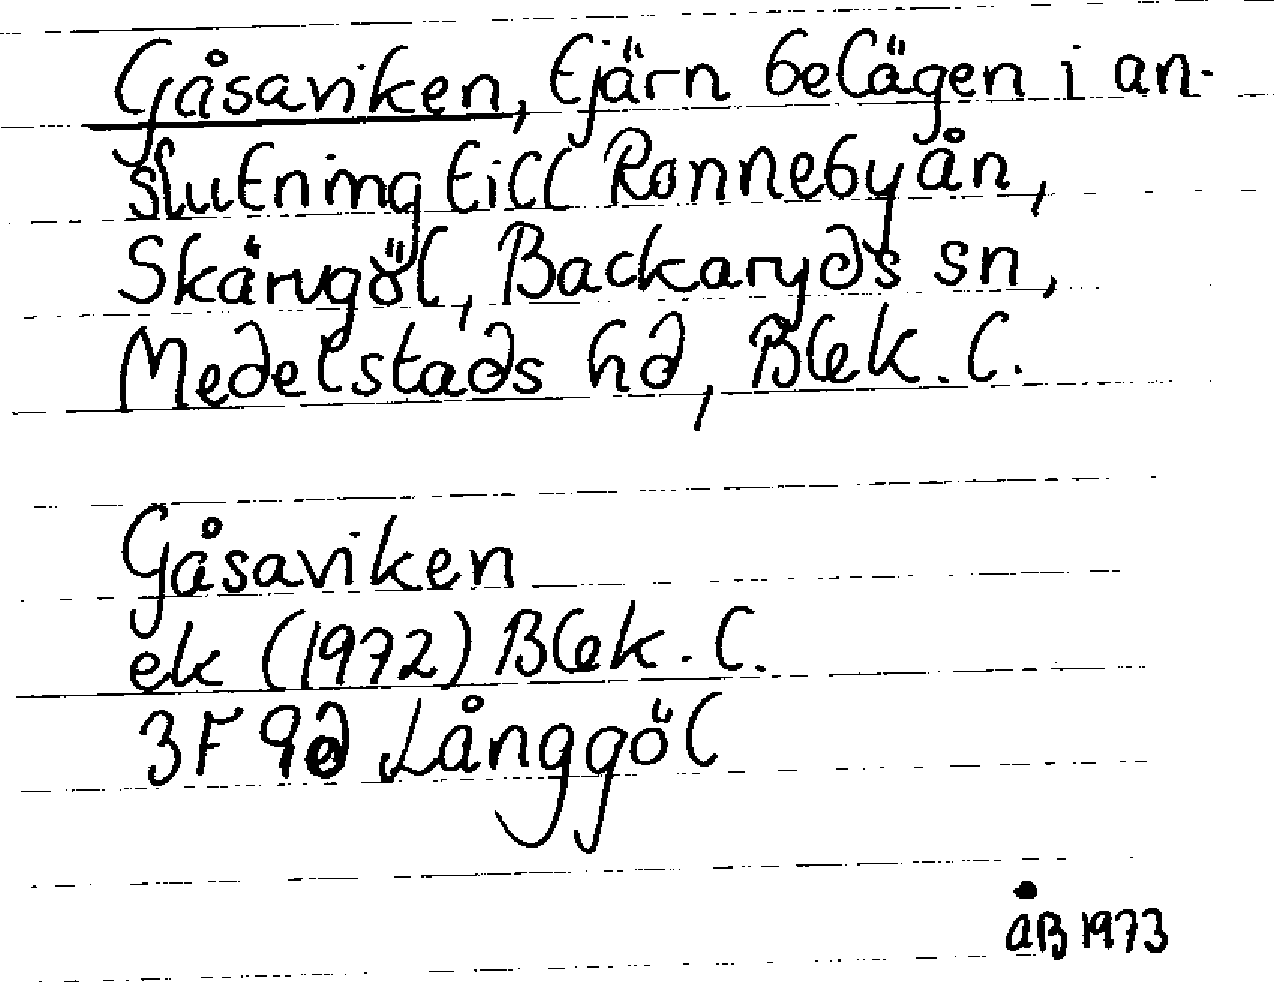 Gåsaviken, tjärn belägen i an-
slutning till Ronnebyån,
Skärvgöl, Backaryds sn,
Medelstads hd, Blek. l.
Gåsaviken
ek (1972) Blek. l.
3F 9d Långgöl
åB 1973